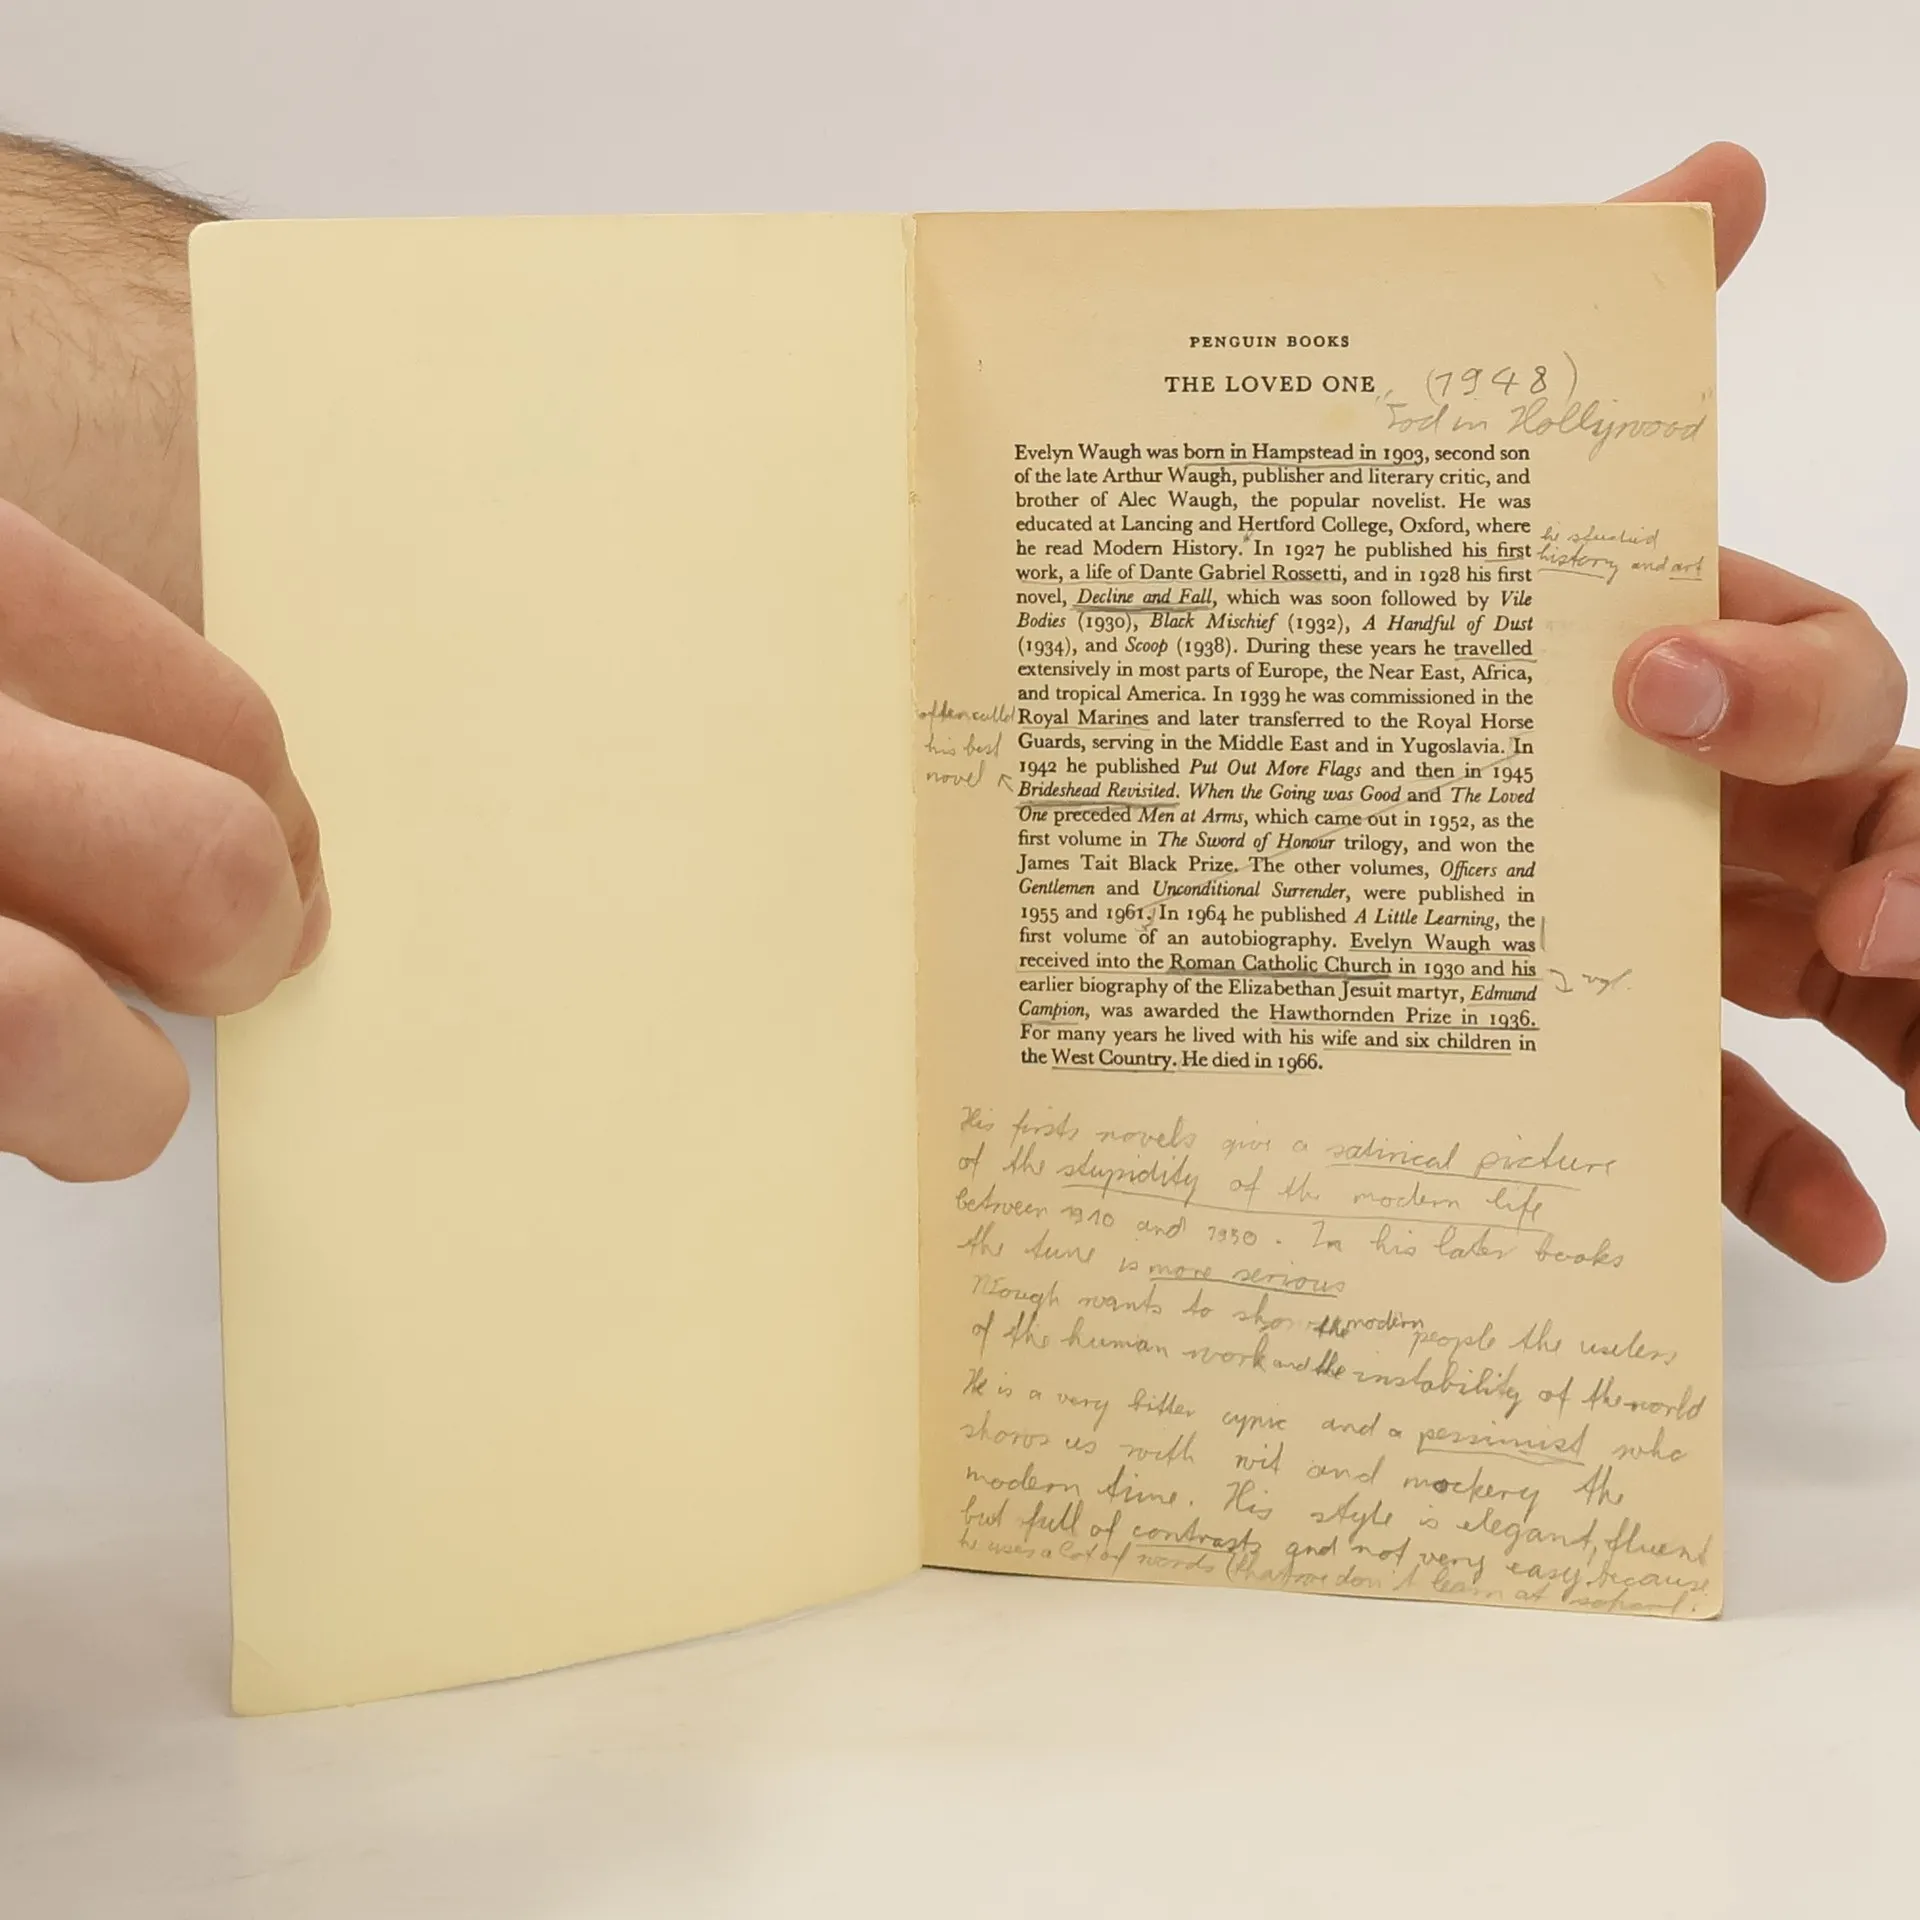 PENGUIN BOOKS
THE LOVED ONE (1948)
"Tod in Hollywood"
Evelyn Waugh was born in Hampstead in 1903, second son
of the late Arthur Waugh, publisher and literary critic, and
brother of Alec Waugh, the popular novelist. He was
educated at Lancing and Hertford College, Oxford, where
he studied
he read Modern History. In 1927 he published his first
history and art
work, a life of Dante Gabriel Rossetti, and in 1928 his first
novel, Decline and Fall, which was soon followed by Vile
Bodies (1930), Black Mischief (1932), A Handful of Dust
(1934), and Scoop (1938). During these years he travelled
extensively in most parts of Europe, the Near East, Africa,
and tropical America. In 1939 he was commissioned in the
often called
Royal Marines and later transferred to the Royal Horse
his best
Guards, serving in the Middle East and in Yugoslavia. In
novel
1942 he published Put Out More Flags and then in 1945
Brideshead Revisited. When the Going was Good and The Loved
One preceded Men at Arms, which came out in 1952, as the
first volume in The Sword of Honour trilogy, and won the
James Tait Black Prize. The other volumes, Officers and
Gentlemen and Unconditional Surrender, were published in
1955 and 1961. In 1964 he published A Little Learning, the
first volume of an autobiography. Evelyn Waugh was
received into the Roman Catholic Church in 1930 and his
earlier biography of the Elizabethan Jesuit martyr, Edmund
Campion, was awarded the Hawthornden Prize in 1936.
For many years he lived with his wife and six children in
the West Country. He died in 1966.
His firsts novels give a satirical picture
of the stupidity of the modern life
between 1910 and 1930. In his later books
the tune is more serious
wants to show the modern people the useless
of the human work and the instability of the world
He is a very bitter cynic and a pessimist who
shows us with wit and mockery the
modern time. His style is elegant, fluent
but full of contrasts and not very easy because
he uses a lot of words (that we don't learn at school.